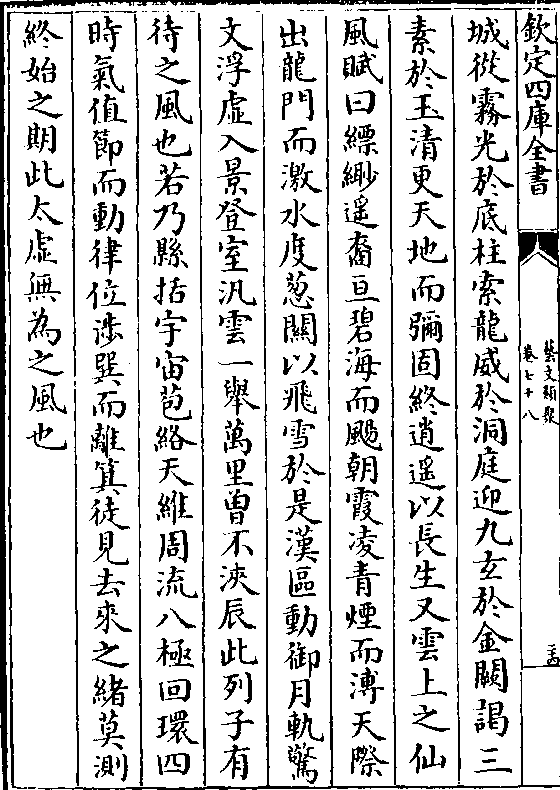 欽定四庫全書
藝文類聚
卷七十八
三四
城從霧光於底柱索龍威於洞庭迎九玄於金闕謁三
素於玉清更天地而彌固終逍遥以長生又雲上之仙
風賦曰縹緲遥裔亘碧海而颺朝霞凌青煙而溥天際
出龍門而激水度葱關以飛雪於是漢區動御月軌驚
文浮虛入景登室汎雲一舉萬里曾不浹辰此列子有
待之風也若乃縣括宇宙苞絡天維周流八極回環四
時氣值節而動律位涉巽而離箕徒見去來之緒莫測
終始之期此太虛無為之風也